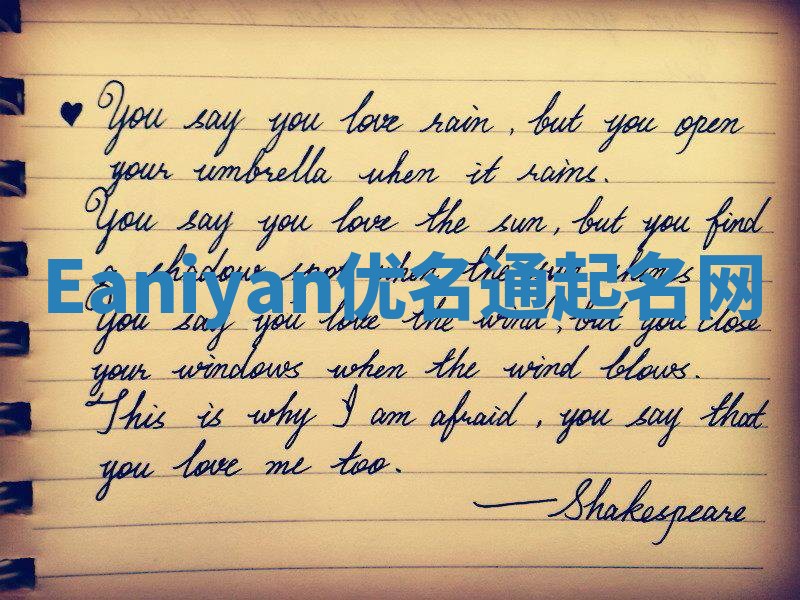 ♥ You say you love rain, but you open
your umbrella when it rains.
You say you love the sun, but you find
a shadow spot when the sun shines
Eaniyan优名通起名网
You say you love the wind, but you close
your windows when the wind blows.
This is why I am afraid, you say that
you love me too.
—Shakespeare